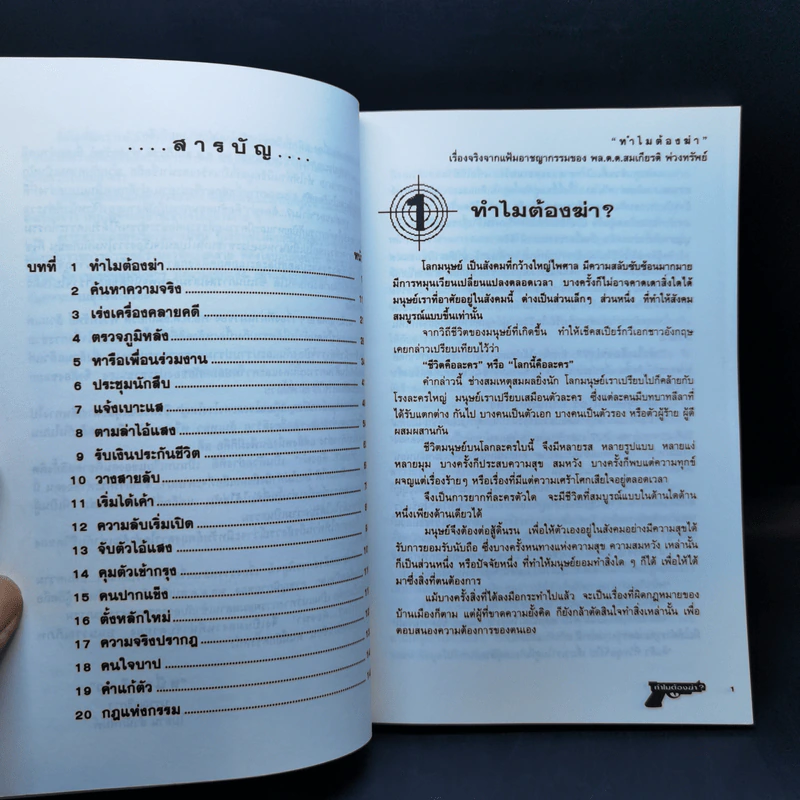 ....สารบัญ....
หน้
บทที่ 1 ทำไมต้องฆ่า
2 ค้นหาความจริง
3 เร่งเครื่องคลายคดี
4 ตรวจภูมิหลัง
5 หารือเพื่อนร่วมงาน
6 ประชุมนักสืบ
7 แจ้งเบาะแส
8 ตามล่าไอ้แสง
9 รับเงินประกันชีวิต
10 วางสายลับ
11 เริ่มได้เค้า
12 ความลับเริ่มเปิด
13 จับตัวไอ้แสง
14 คุมตัวเข้ากรุง
15 คนปากแข็ง
16 ตั้งหลักใหม่
17 ความจริงปรากฎ
18 คนใจบาป
19 คำแก้ตัว
20 กฎแห่งกรรม
"ทำไมต้องฆ่า"
เรื่องจริงจากแฟ้มอาชญากรรมของ พล.ต.ต.สมเกียรติ พ่วงทรัพย์
1 ทำไมต้องฆ่า?
โลกมนุษย์ เป็นสังคมที่กว้างใหญ่ไพศาล มีความสลับซับซ้อนมากมาย
มีการหมุนเวียนเปลี่ยนแปลงตลอดเวลา บางครั้งก็ไม่อาจคาดเดาสิ่งใดได้
มนุษย์เราที่อาศัยอยู่ในสังคมนี้ ต่างเป็นส่วนเล็กๆ ส่วนหนึ่ง ที่ทำให้สังคม
สมบูรณ์แบบขึ้นเท่านั้น
จากวิถีชีวิตของมนุษย์ที่เกิดขึ้น ทำให้เช็คสเปียร์กวีเอกชาวอังกฤษ
เคยกล่าวเปรียบเทียบไว้ว่า
"ชีวิตคือละคร" หรือ "โลกนี้คือละคร"
คำกล่าวนี้ ช่างสมเหตุสมผลยิ่งนัก โลกมนุษย์เราเปรียบไปก็คล้ายกับ
โรงละครใหญ่ มนุษย์เราเปรียบเสมือนตัวละคร ซึ่งแต่ละคนมีบทบาทลีลาที่
ได้รับแตกต่าง กันไป บางคนเป็นตัวเอก บางคนเป็นตัวรอง หรือตัวผู้ร้าย ผู้ดี
ผสมผสานกัน
ชีวิตมนุษย์บนโลกละครใบนี้ จึงมีหลายรส หลายรูปแบบ หลายแง่
หลายมุม บางครั้งก็ประสบความสุข สมหวัง บางครั้งก็พบแต่ความทุกข์
ผจญแต่เรื่องร้ายๆ หรือเรื่องที่มีแต่ความเศร้าโศกเสียใจอยู่ตลอดเวลา
จึงเป็นการยากที่ละครตัวใด จะมีชีวิตที่สมบูรณ์แบบในด้านใดด้าน
หนึ่งเพียงด้านเดียวได้
มนุษย์จึงต้องต่อสู้ดิ้นรน เพื่อให้ตัวเองอยู่ในสังคมอย่างมีความสุขได้
รับการยอมรับนับถือ ซึ่งบางครั้งหนทางแห่งความสุข ความสมหวัง เหล่านั้น
ก็เป็นส่วนหนึ่ง หรือปัจจัยหนึ่ง ที่ทำให้มนุษย์ยอมทำสิ่งใด ๆ ก็ได้ เพื่อให้ได้
มาซึ่งสิ่งที่ตนต้องการ
แม้บางครั้งสิ่งที่ได้ลงมือกระทำไปแล้ว จะเป็นเรื่องที่ผิดกฎหมายของ
บ้านเมืองก็ตาม แต่ผู้ที่ขาดความยั้งคิด ก็ยังกล้าตัดสินใจทำสิ่งเหล่านั้น เพื่อ
ตอบสนองความต้องการของตนเอง
ทำไมต้องฆ่า? 1